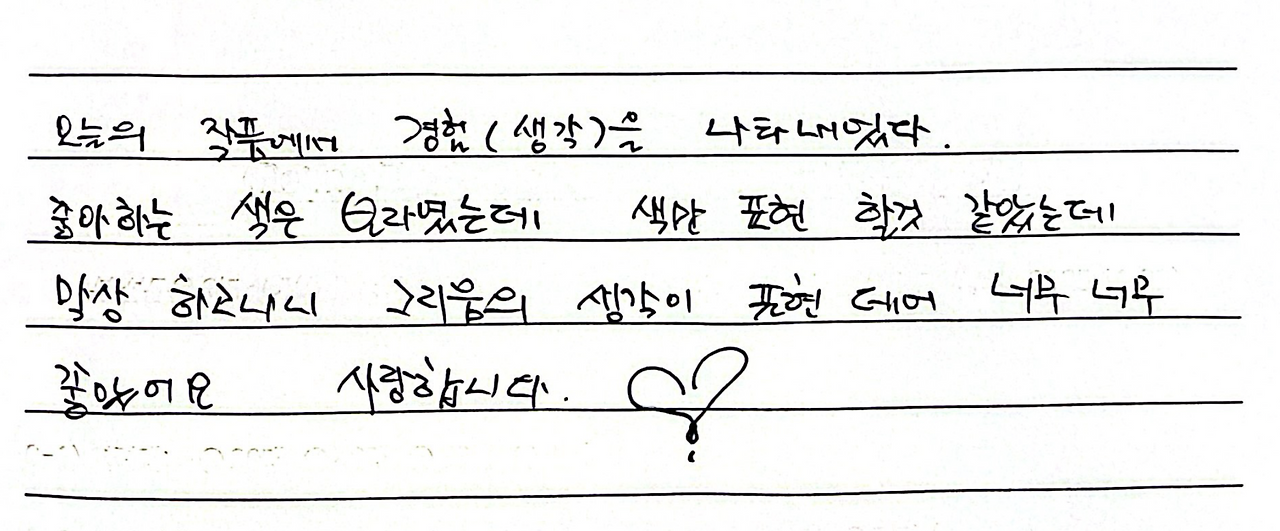 오늘의 작품에서 경험(생각)을 나타내었다.
좋아하는 색은 보라였는데 색만 표현 할것 같았는데
막상 하고나니 그리움의 생각이 표현 데어 너무 너무
좋았어요 사랑합니다.